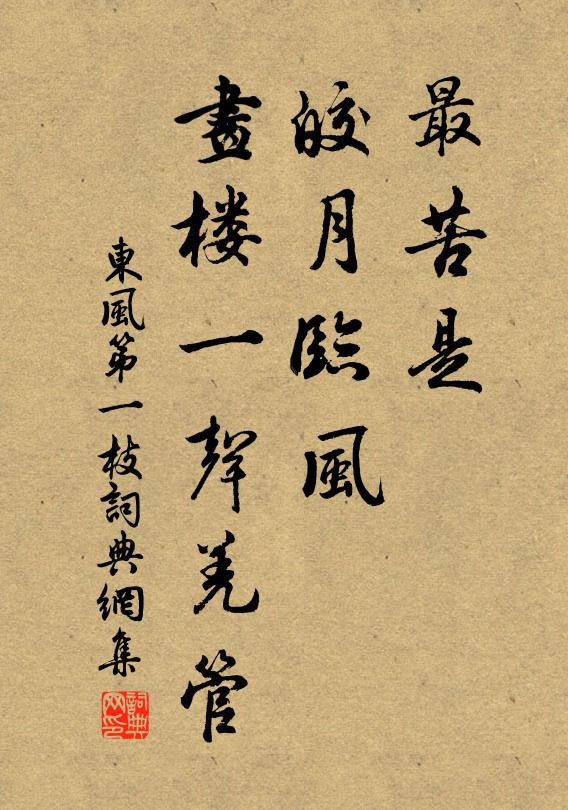 最苦是
皎月臨風
畫樓一聲羌管
東風第一枝詞典網集
詞典網印